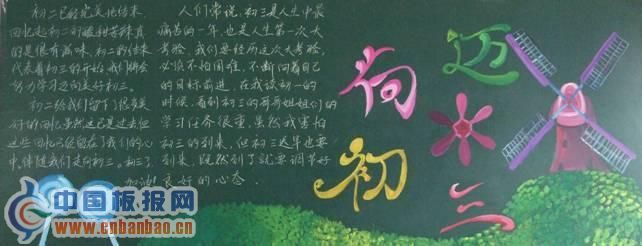 初二已经完美地结束
回忆起初二的酸甜苦辣真
的是很有滋味，初二的结束
代表着初三的开始，我们将会
努力学习迈向美好初三。
初二给我们留下了很多美
好的回忆虽然这已是过去但
这些回忆不仅留在了我们的心
中，伴随我们走向初三。初三了
加油！
人们常说，初三是人生中最
痛苦的一年，也是人生第一次大
考验，我们要经历这次大考验，
必须不怕困难，不断向着自己
的目标前进，在我读初一的
时候，看到初三的哥哥姐姐们的
学习任务很重，虽然我害怕
初三的到来，但初三迟早也要
到来，既然到了就要调节好
良好的心态。
迈向
初三
中国板报网
www.cnbanbao.cn